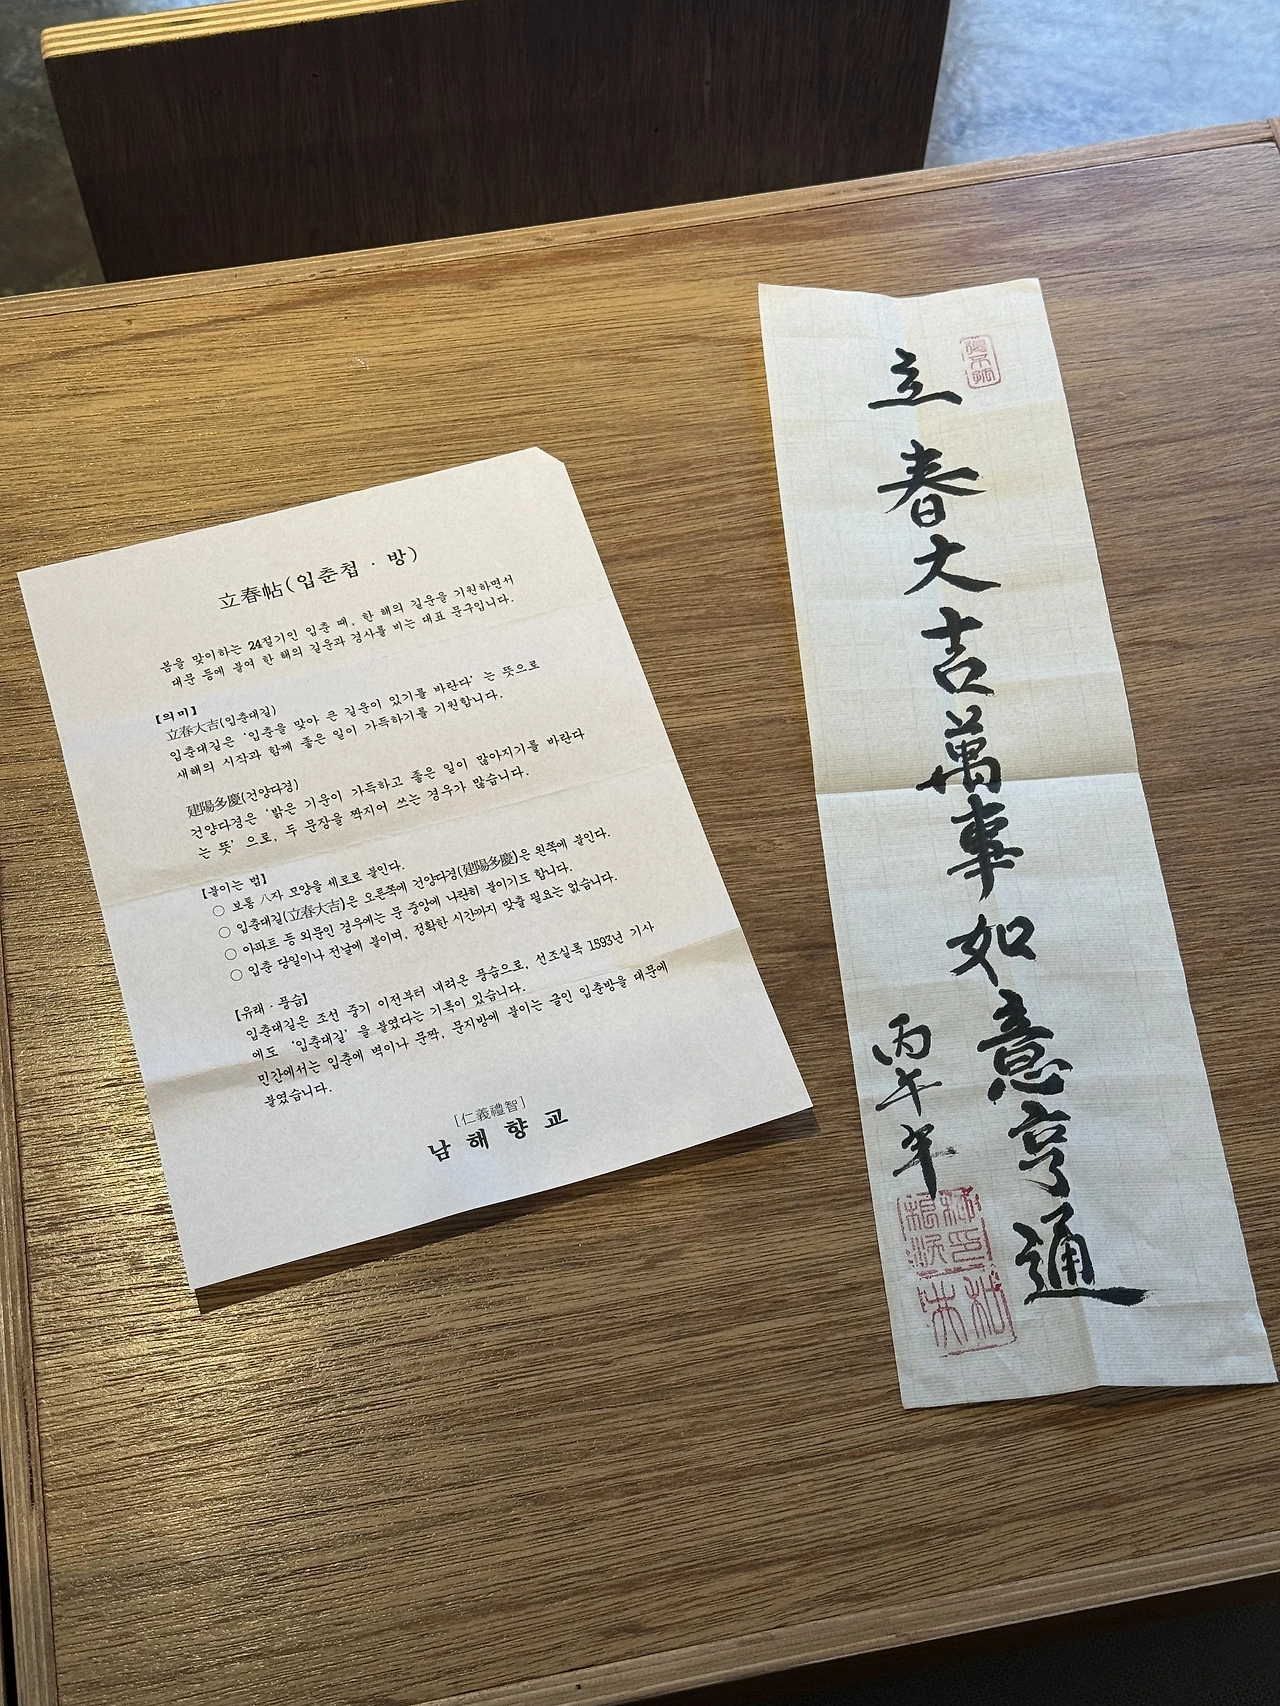 立春帖(입춘첩 · 방)
봄을 맞이하는 24절기인 입춘 때, 한 해의 길운을 기원하면서
대문 등에 붙여 한 해의 길운과 경사를 비는 대표 문구입니다.
【의미】
立春大吉(입춘대길)
입춘대길은 '입춘을 맞아 큰 길운이 있기를 바란다' 는 뜻으로
새해의 시작과 함께 좋은 일이 가득하기를 기원합니다.
建陽多慶(건양다경)
건양다경은 '밝은 기운이 가득하고 좋은 일이 많아지기를 바란다
는 뜻' 으로, 두 문장을 짝지어 쓰는 경우가 많습니다.
【붙이는 법】
○ 보통 八자 모양을 세로로 붙인다.
○ 입춘대길(立春大吉)은 오른쪽에 건양다경(建陽多慶)은 왼쪽에 붙인다.
○ 아파트 등 외문인 경우에는 문 중앙에 나란히 붙이기도 합니다.
○ 입춘 당일이나 전날에 붙이며, 정확한 시간까지 맞출 필요는 없습니다.
【유래 · 풍습】
입춘대길은 조선 중기 이전부터 내려온 풍습으로, 선조실록 1593년 기사
에도 '입춘대길' 을 붙였다는 기록이 있습니다.
민간에서는 입춘에 벽이나 문짝, 문지방에 붙이는 글인 입춘방을 대문에
붙였습니다.
[仁義禮智]
남 해 향 교
立春大吉萬事如意亨通
丙午年